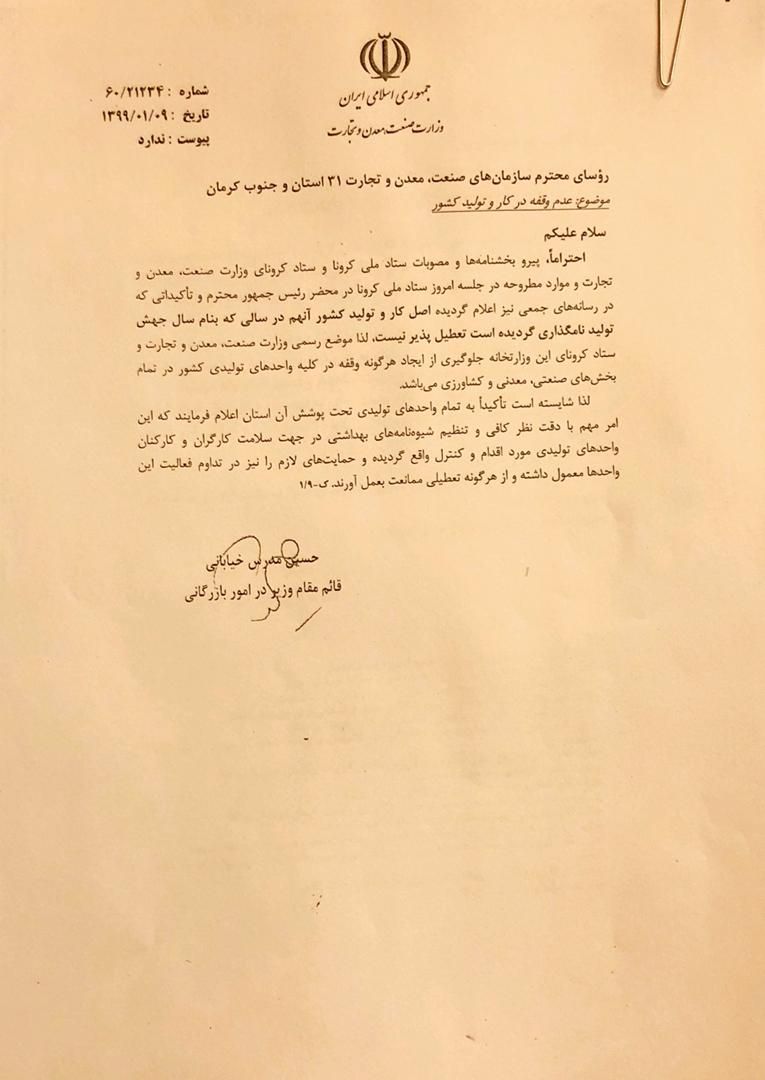 جمهوری اسلامی ایران
وزارت صنعت، معدن و تجارت
شماره : ۶۰/۲۱۲۳۴
تاریخ : ۱۳۹۹/۰۱/۰۹
پیوست : ندارد
رؤسای محترم سازمان‌های صنعت، معدن و تجارت ۳۱ استان و جنوب کرمان
موضوع: عدم وقفه در کار و تولید کشور
سلام علیکم
احتراماً، پیرو بخشنامه‌ها و مصوبات ستاد ملی کرونا و ستاد کرونای وزارت صنعت، معدن و
تجارت و موارد مطروحه در جلسه امروز ستاد ملی کرونا در محضر رئیس جمهور محترم و تأکیداتی که
در رسانه‌های جمعی نیز اعلام گردیده اصل کار و تولید کشور آنهم در سالی که بنام سال جهش
تولید نامگذاری گردیده است تعطیل پذیر نیست، لذا موضع رسمی وزارت صنعت، معدن و تجارت و
ستاد کرونای این وزارتخانه جلوگیری از ایجاد هرگونه وقفه در کلیه واحدهای تولیدی کشور در تمام
بخش‌های صنعتی، معدنی و کشاورزی می‌باشد.
لذا شایسته است تأکیداً به تمام واحدهای تولیدی تحت پوشش آن استان اعلام فرمایند که این
امر مهم با دقت نظر کافی و تنظیم شیوه‌نامه‌های بهداشتی در جهت سلامت کارگران و کارکنان
واحدهای تولیدی مورد اقدام و کنترل واقع گردیده و حمایت‌های لازم را نیز در تداوم فعالیت این
واحدها معمول داشته و از هرگونه تعطیلی ممانعت بعمل آورند. ک-۱/۹
حسین مدرس خیابانی
قائم مقام وزیر در امور بازرگانی